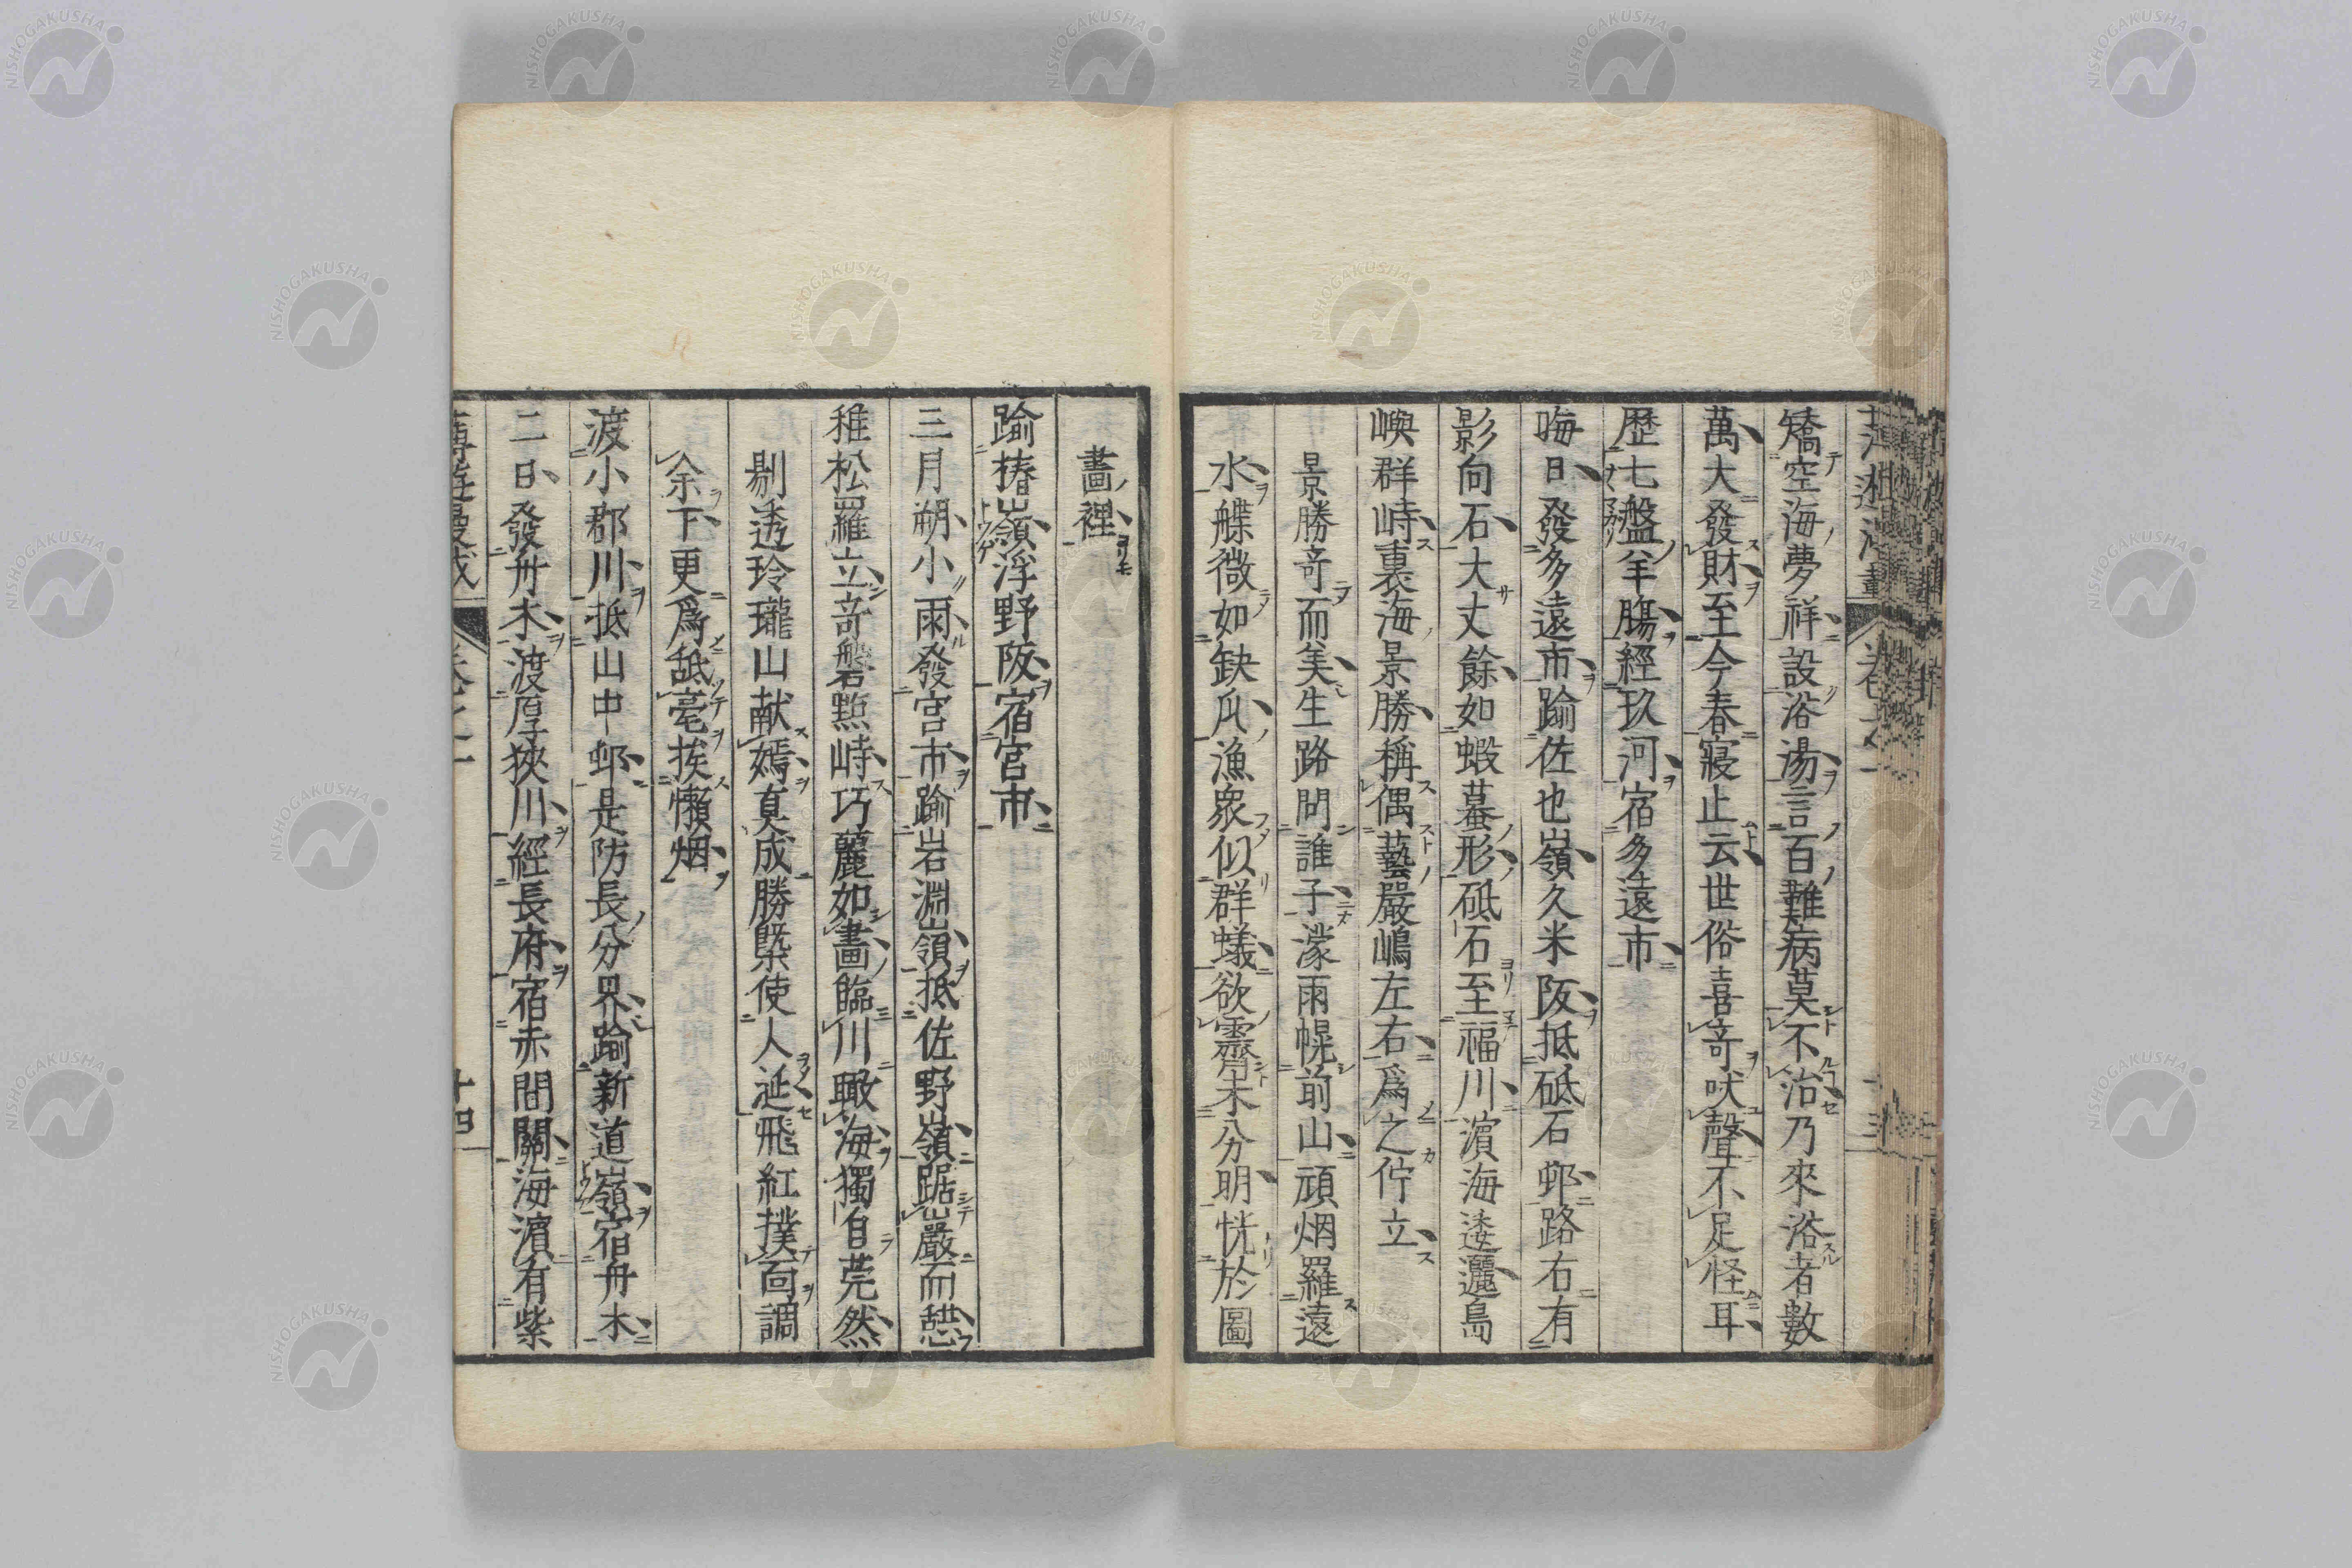 矯空海夢祥設浴湯言百難病莫不治乃來浴者數
萬大發財至今春寢止云世俗喜竒吠聲不足怪耳
歴七盤羊膓經玖河宿多遠市
晦日發多遠市踰佐也嶺久米阪抵砥石邨路右有
影向石大丈餘如蝦蟇形砥石至福川濵海逶邐島
嶼群峙裏海景勝稱偶藝嚴嶋左右爲之佇立
景勝竒而美生路問誰子濛雨幌前山頑烟羅遠
水艓微如缺瓜漁衆似群蟻欲霽未分明恍於圖
畫裡
踰椿嶺浮野阪宿宮市
三月朔小雨發宮市踰岩淵嶺抵佐野嶺踞巖而憩
稚松羅立竒磐㸃峙巧麗如畫臨川瞰海獨自茫然
剔透玲瓏山献嫣真成勝槩使人延飛紅撲面調
余下更爲舐毫挨懶烟
渡小郡川抵山中邨是防長分界踰新道嶺宿舟木
二日發舟木渡厚狹川經長府宿赤間關海濵有紫
十四